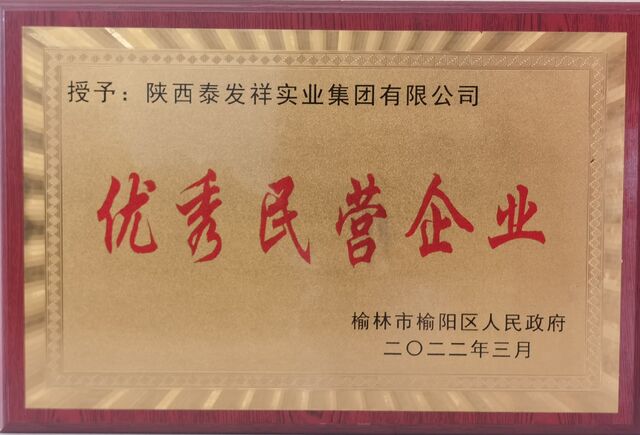 授予：陕西泰发祥实业集团有限公司
优秀民营企业
榆林市榆阳区人民政府
二〇二二年三月